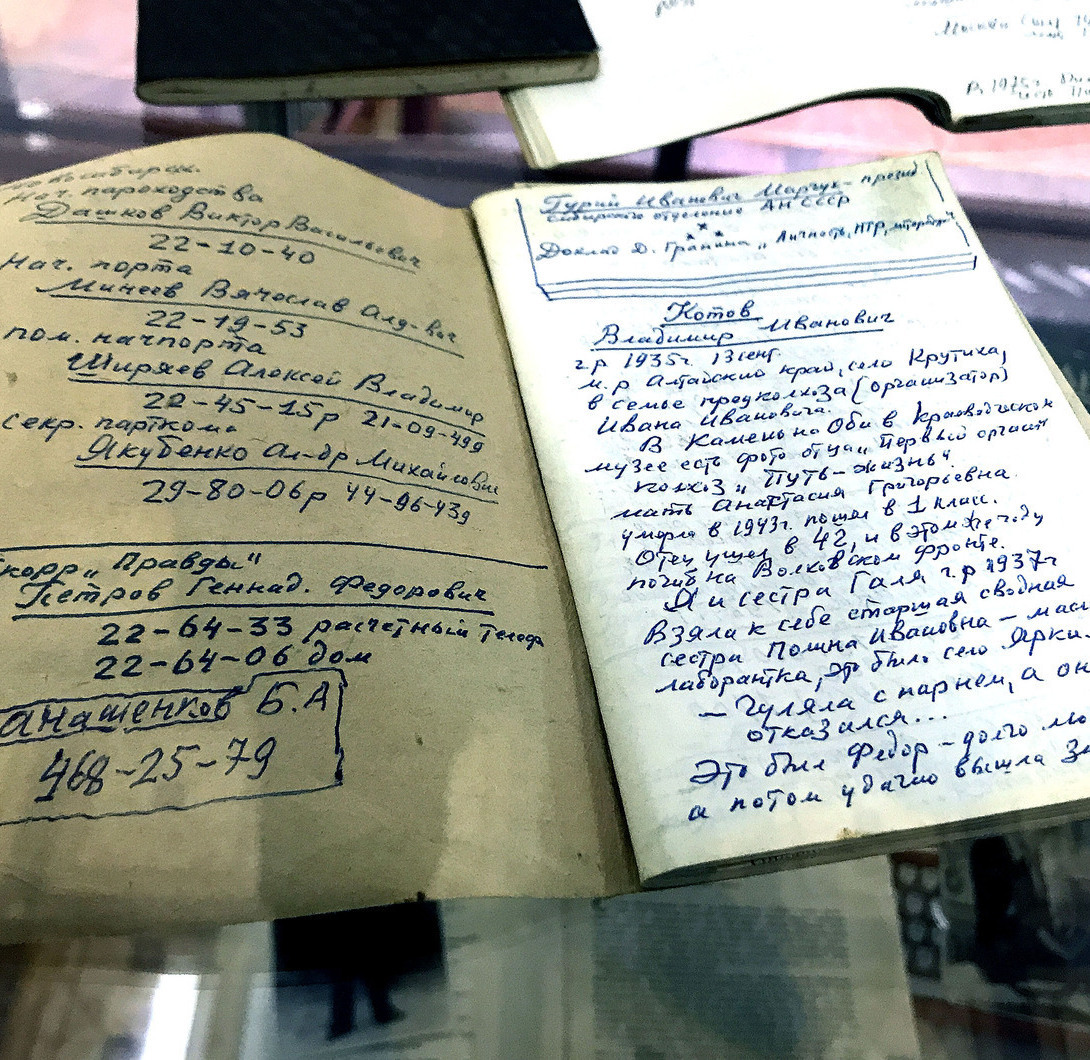 Нач. пароходства
Дашков Виктор Васильевич
22-10-40
Нач. порта
Минеев Вячеслав Алд-вич
22-19-53
пом. начпорта
Ширяев Алексей Владимир
22-45-15р 21-09-49д
секр. парткома
Якубенко Ал-др Михайлович
29-80-06р 44-96-43д
корр „Правды"
Петров Геннад. Федорович
22-64-33 расчетный телеф
22-64-06 дом
анашенков Б.А
468-25-79
Гурий Иванович Марчук - презид
Сибирское отделение АН СССР
Доклад Д. Гранина „Личность, НТР, литература"
Котов
Владимир Иванович
г.р 1935г. 13 сент.
м.р Алтайский край, село Крутиха,
в семье предколхоза (организатор)
Ивана Ивановича.
В Камень на Оби в краеведческом
музее есть фото отца „Первый организ
колхоз „Путь - жизнь".
мать Анастасия Григорьевна.
умерла в 1943г. пошел в 1 класс.
Отец ушел в 42, и в этом же году
погиб на Волховском фронте.
Я и сестра Галя г.р 1937г
Взяла к себе старшая сводная
сестра Полина Ивановна - мас
лаборантка, это было село Ярки.
- Гуляла с парнем, а он
отказался...
Это был Федор - долго лю
а потом удачно вышла за
В 1935г.